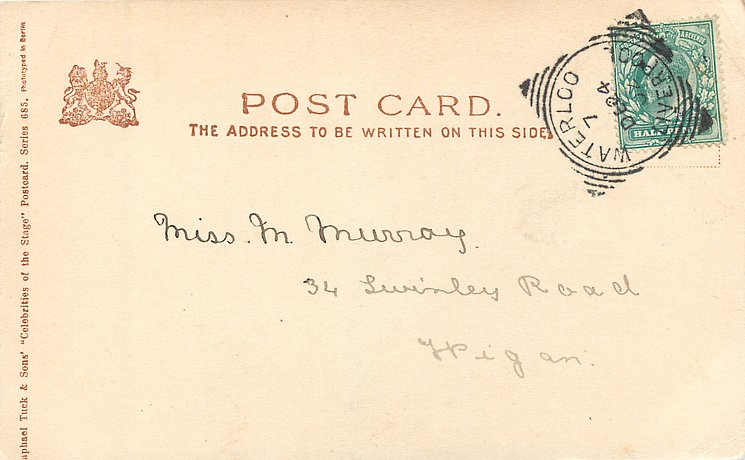 POST CARD.
THE ADDRESS TO BE WRITTEN ON THIS SIDE.
WATERLOO
LIVERPOOL
7
04
HALF
Miss. M. Murray.
34 Swinley Road
Wigan.
aphael Tuck & Sons' "Celebrities of the Stage" Postcard. Series 685. Phototyped in Berlin